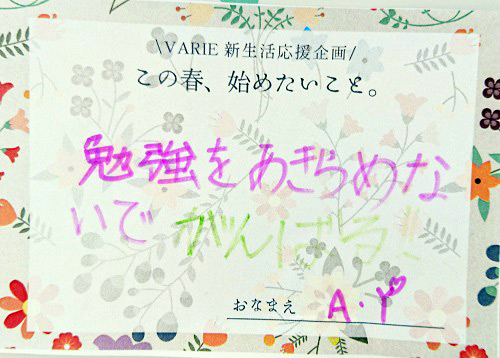 \VARIE 新生活応援企画/
この春、始めたいこと。
勉強をあきらめな
いで がんばる!
おなまえ A.Y♡